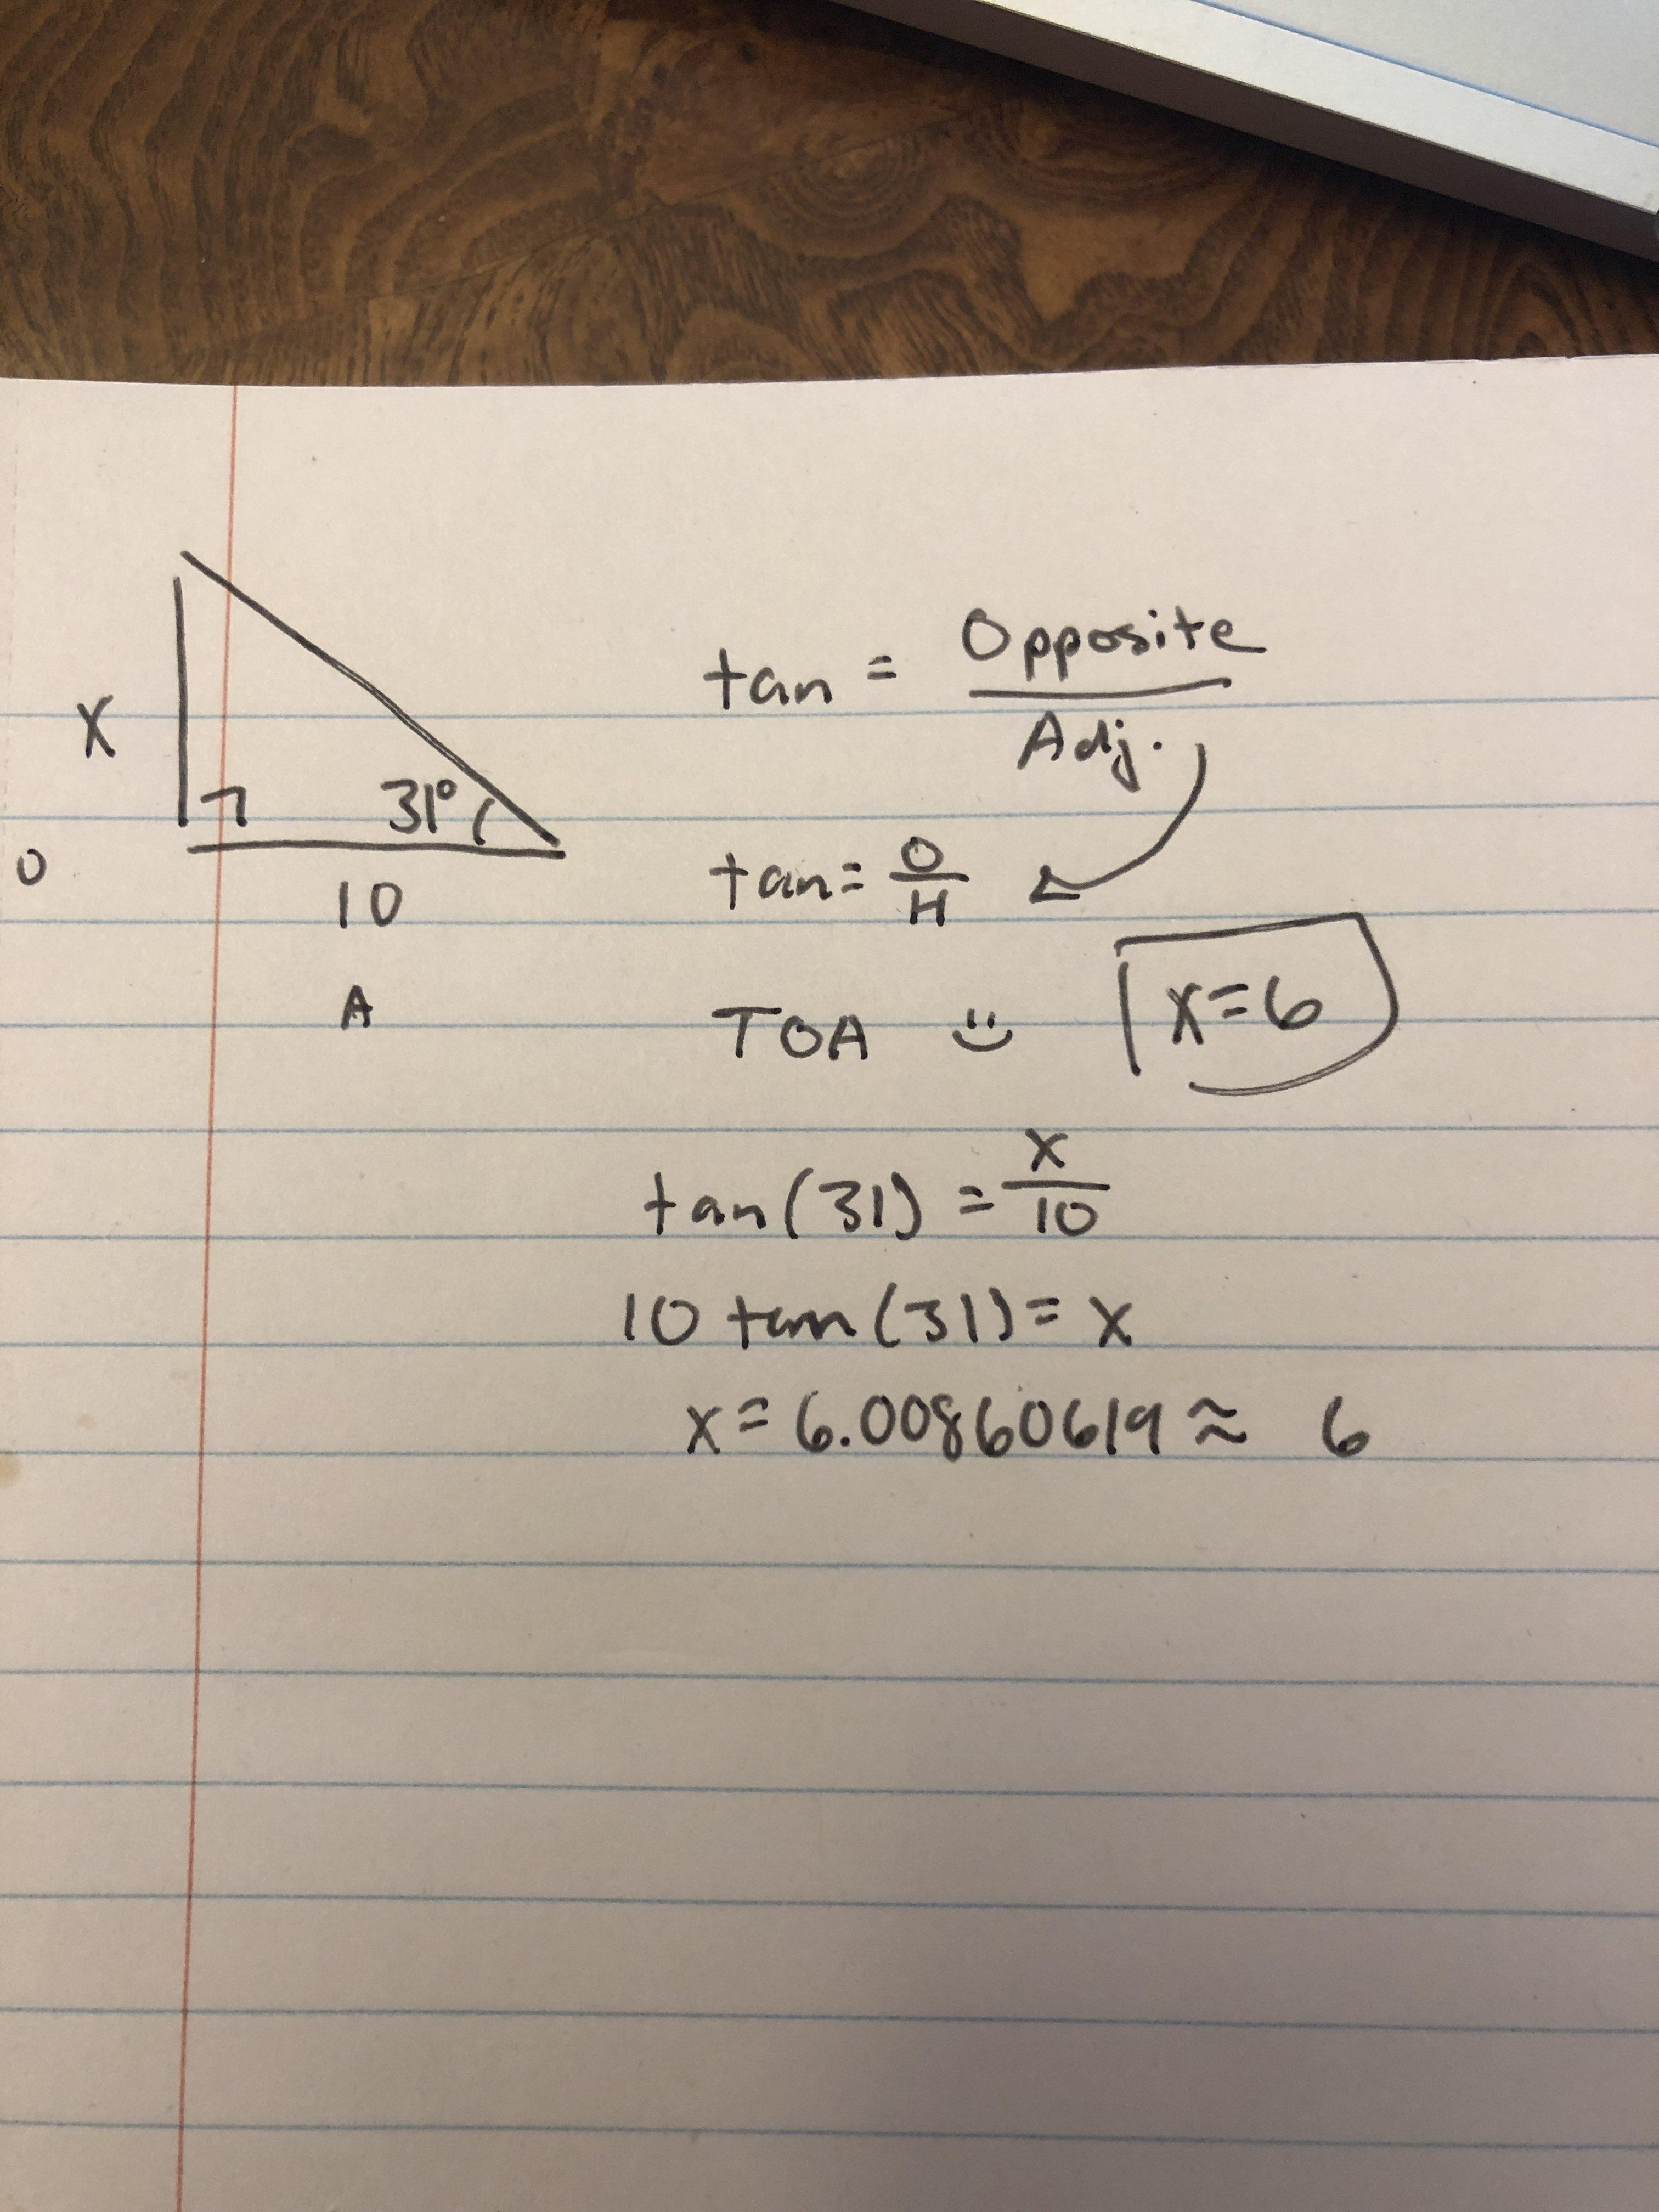 X
31°
O
10
A
tan = Opposite / Adj.
tan = O / H
TOA :)
x=6
tan(31) = x / 10
10 tan(31) = x
x = 6.00860619 ≈ 6